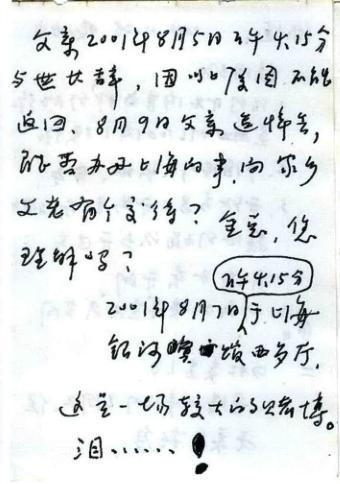 父亲2001年8月5日下午4.15分
与世长辞，因
返回，8月9日父亲追悼会，
上海的事，向家乡
父老有个交待？ 您
理解吗？
下午4.15分
2001年8月7日于上海
银河宾馆 西多厅，
这是一场较大的赌博。
泪......！